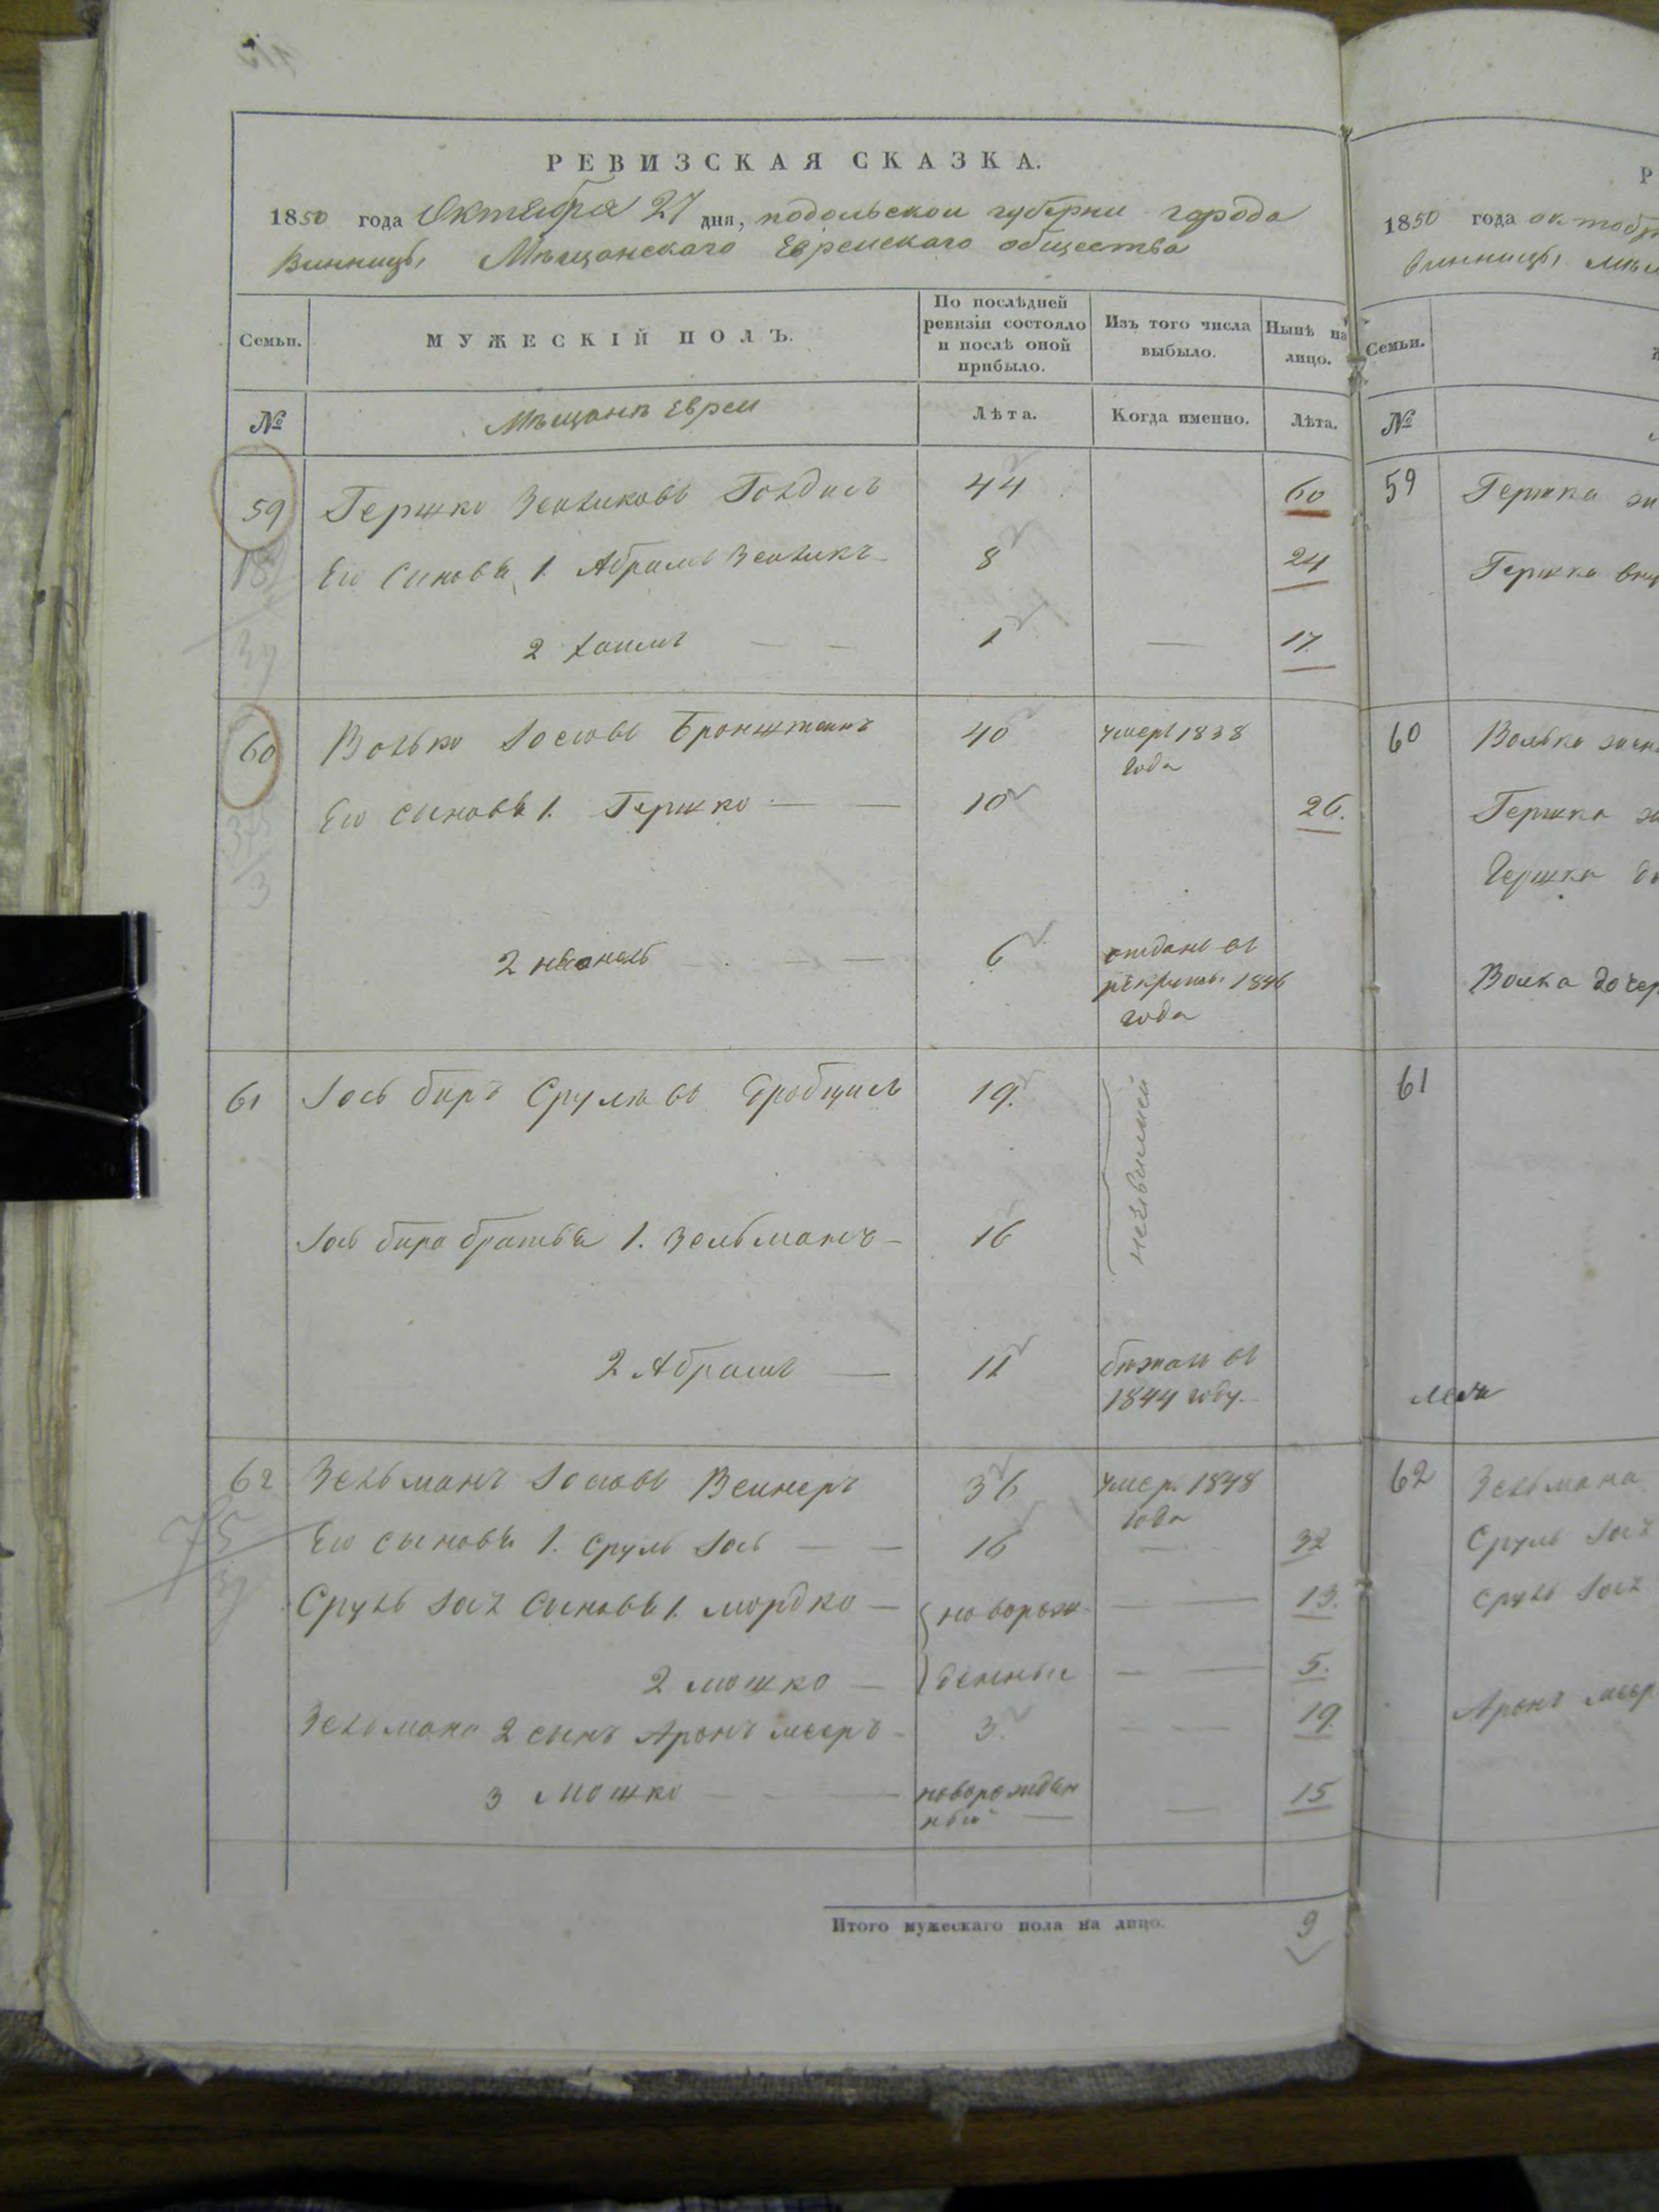 РЕВИЗСКАЯ СКАЗКА.
1850 года Октября 27 дня, подольской губерни города
Винницы, Мѣщанскаго Еврейскаго общества
Семьи.
МУЖЕСКІЙ ПОЛЪ.
По послѣдней ревизіи состояло и послѣ оной прибыло.
Изъ того числа выбыло.
Нынѣ на лицо.
№
Мѣщанъ евреи
Лѣта.
Когда именно.
Лѣта.
59 Гершко Зейликовъ 44 60
Его Сыновья 1. Абрамъ Зейликъ 8 24
2 Хаимъ 1 17
60 Волько Іосіовъ Бронштеинъ 40 умеръ 1838 года
Его сыновья 1. Гершко 10 26.
2 6 отданъ въ рекруты 1846 года
61 Іось биръ Срулевъ 19.
Іось бира братья 1. Зельманъ 16
2 Абрамъ 11 бѣжалъ въ 1844 году.
62 Зельманъ Іосіовъ Веинеръ 36 умер. 1848 года
Его сыновья 1. Сруль Іось 16 32
Сруль Іося Сыновья 1. мордко новорож- 13.
2 мошко денные 5.
Зельмана 2 сынъ Аронъ мееръ 3. 19.
3 Мошко новорожден ный 15
Итого мужескаго пола на лицо. 9
1850 года октобр
Винницы,
Семьи.
№
59 Гершка
Гершка
60 Волька
Гершка
Гершка
Волка дочер
61
62 Зельмана
Сруль Іося
Сруль Іося
Аронъ меер